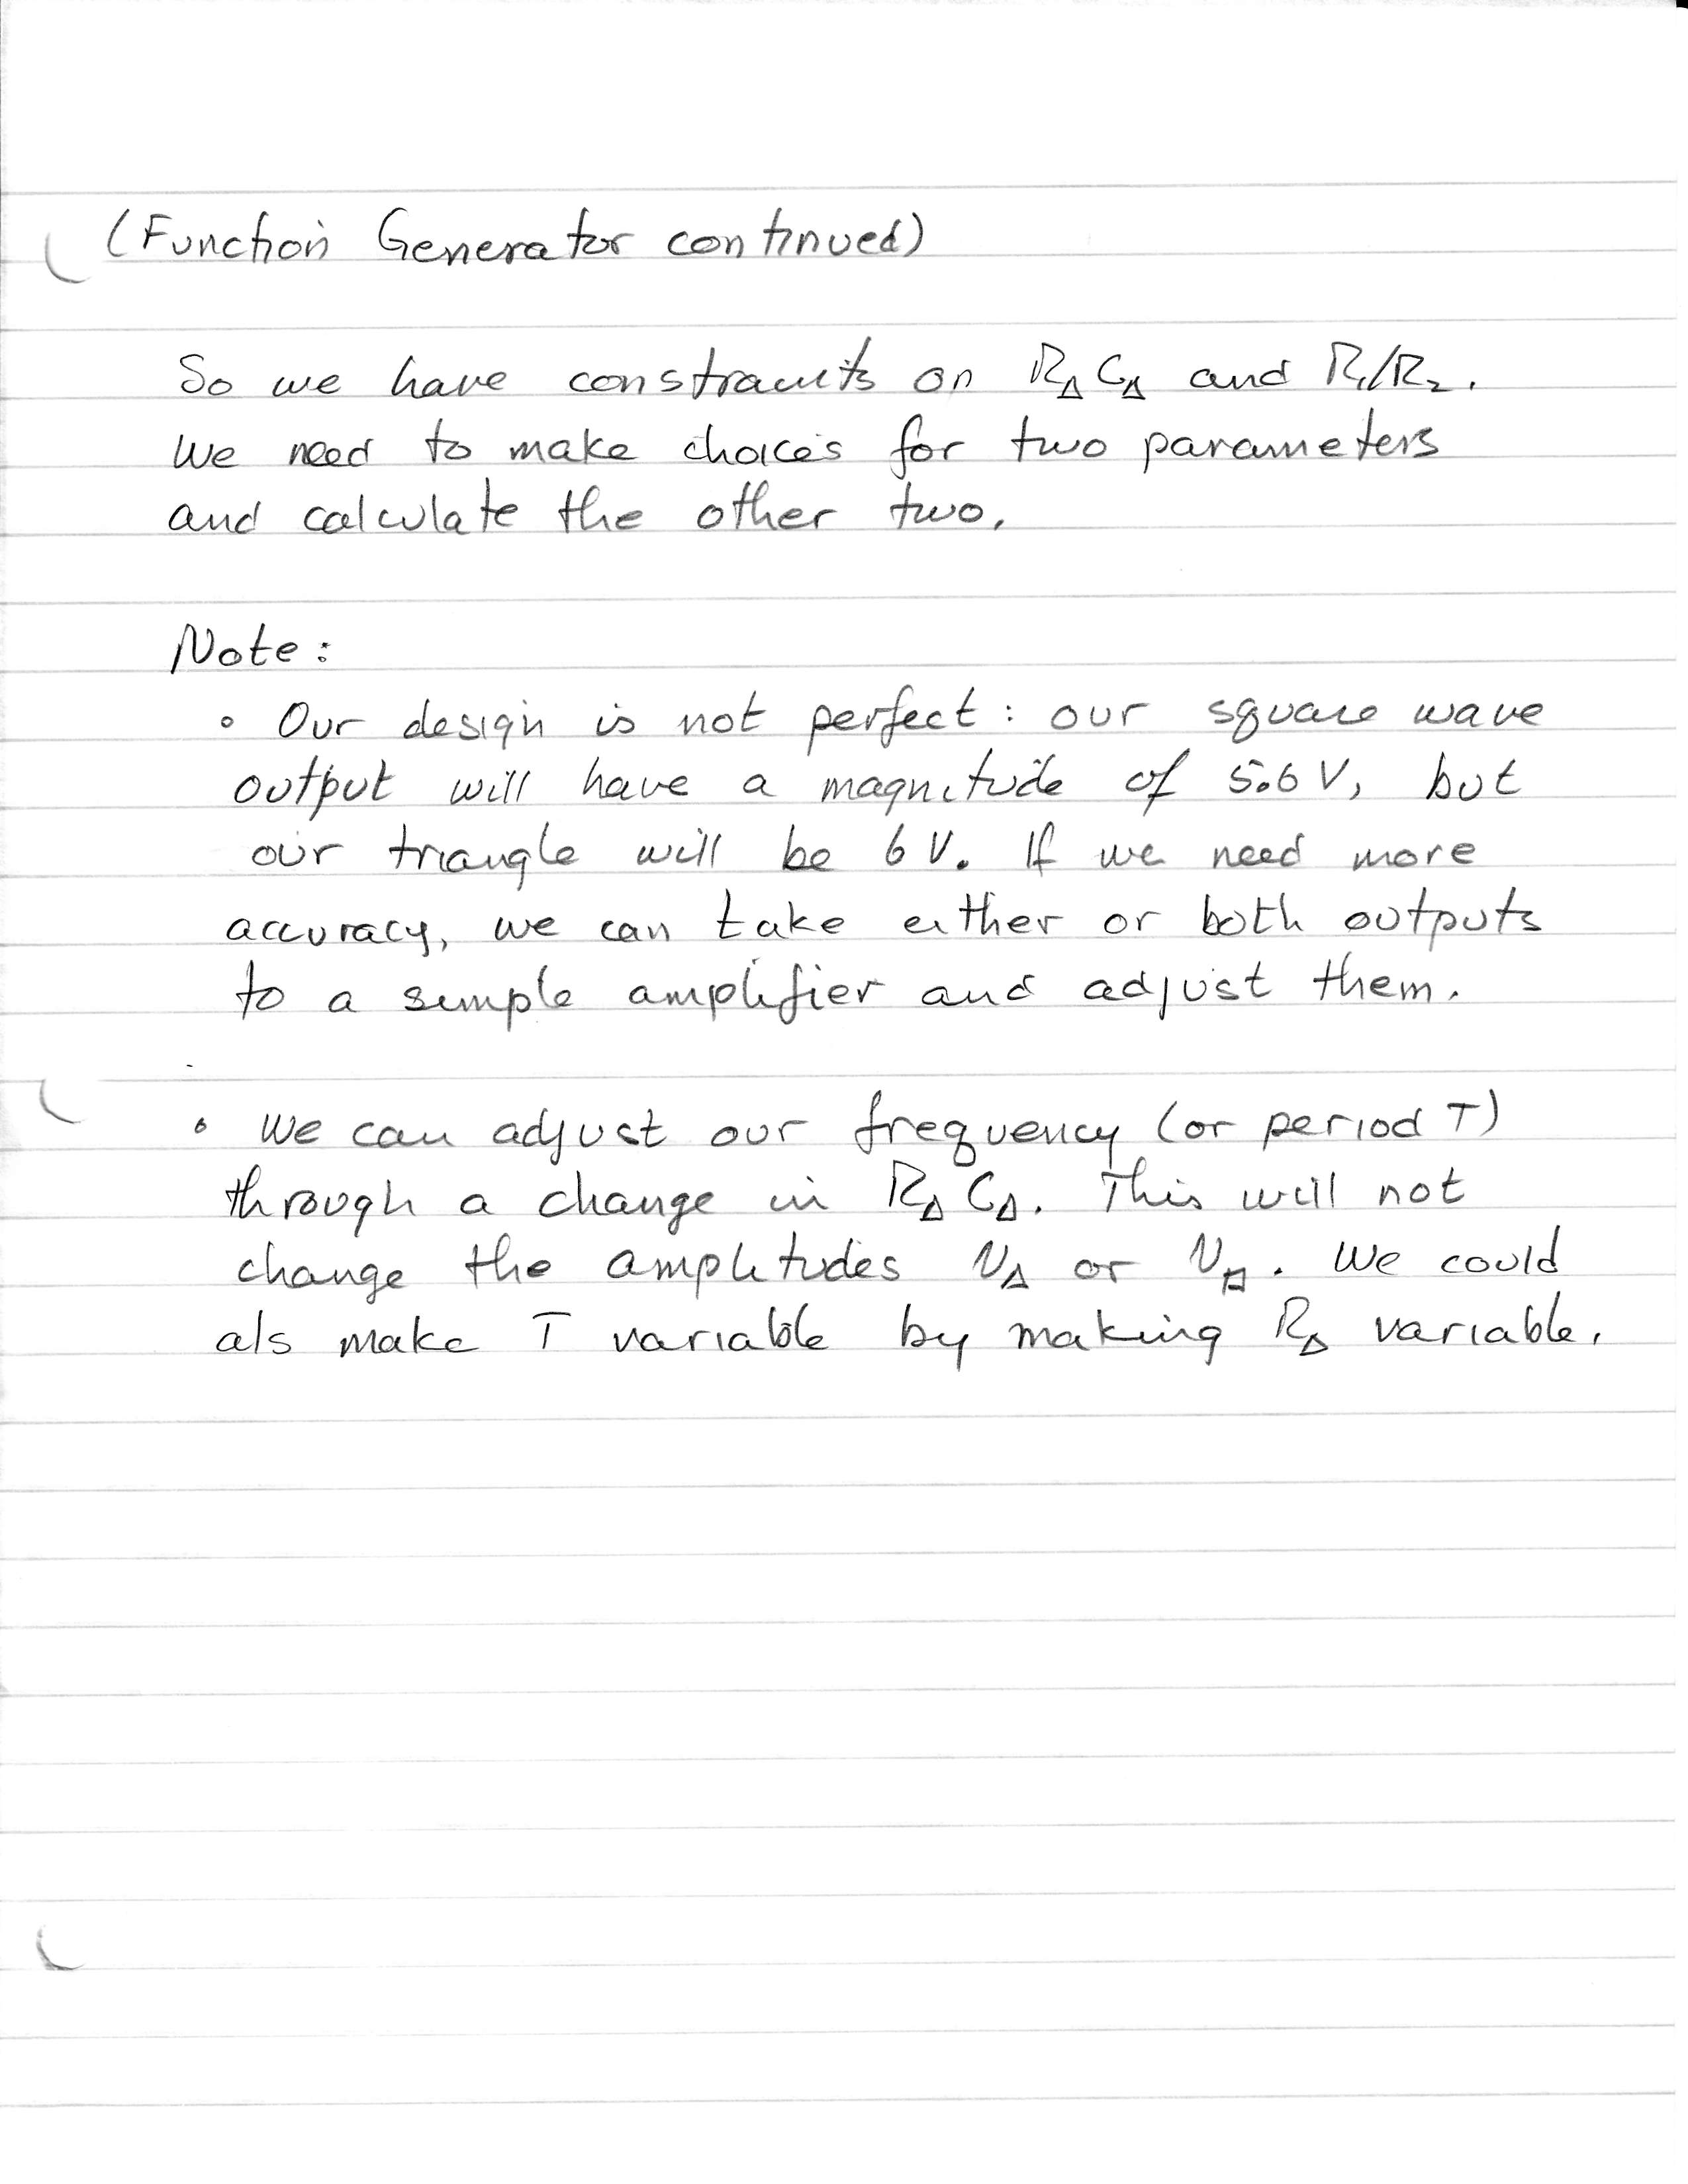 (Function Generator continued)
So we have constraints on R△ C△ and R₁/R₂.
We need to make choices for two parameters
and calculate the other two.
Note:
• Our design is not perfect: our square wave
output will have a magnitude of 5.6 V, but
our triangle will be 6 V. If we need more
accuracy, we can take either or both outputs
to a simple amplifier and adjust them.
• We can adjust our frequency (or period T)
through a change in R△ C△. This will not
change the amplitudes V△ or V□. We could
als make T variable by making R△ variable.